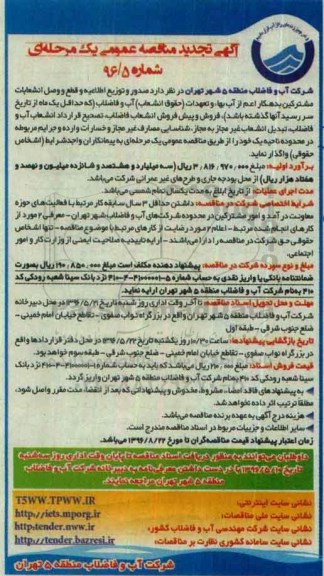 آگهی تجدید مناقصه عمومی یک مرحله‌ای
شماره ۹۶/۵
شرکت آب و فاضلاب منطقه ۵ شهر تهران در نظر دارد صدور و توزیع اطلاعیه و قطع و وصل انشعابات
مشترکین بدهکار اعم از آب بها، و تعهدات (حقوق انشعاب) آب و فاضلاب (که حداقل یک ماه از تاریخ
سررسید آنها گذشته باشد)، فروش و پیش فروش انشعاب فاضلاب، تصحیح قرارداد انشعاب آب و
فاضلاب، تبدیل انشعاب غیر مجاز به مجاز، شناسایی مصارف غیر مجاز و خسارات وارده و جرایم مربوطه
در محدوده ناحیه یک خود را از طریق مناقصه عمومی یک مرحله‌ای به پیمانکاران واجد شرایط (اشخاص
حقوقی) واگذار نماید.
برآورد اولیه: مبلغ ۳،۸۱۶،۹۷۰،۰۰۰ ریال (سه میلیارد و هشتصد و شانزده میلیون و نهصد و
هفتاد هزار ریال) از محل بودجه جاری و طرح‌های غیر عمرانی شرکت می‌باشد.
مدت اجرای عملیات: از تاریخ ابلاغ به مدت یکسال تمام شمسی می‌باشد.
شرایط اختصاصی شرکت در مناقصه: داشتن حداقل ۳ سال سابقه کار مرتبط با فعالیت‌های حوزه
معاونت در آمد و امور مشترکین در محدوده شرکت‌های آب و فاضلاب شهر تهران - معرفی ۲ مورد از
کارهای انجام شده مرتبط - اعلام ۲ مورد رضایت از کارهای مرتبط با موضوع مناقصه - تنها اشخاص
حقوقی حق شرکت در مناقصه را دارا می‌باشند - ارایه تاییدیه صلاحیت ایمنی از وزارت کار و امور
اجتماعی
مبلغ و نوع سپرده شرکت در مناقصه: پیشنهاد دهنده مکلف است مبلغ ۱۹۰،۸۵۰،۰۰۰ ریال بصورت
ضمانتنامه بانکی یا واریز نقدی به حساب شماره نزد بانک سینا شعبه رودکی کد
۴۱۰ به نام شرکت آب و فاضلاب منطقه ۵ شهر تهران ارایه نماید.
مهلت و محل تحویل اسناد مناقصه: تا آخر وقت اداری روز شنبه به تاریخ ۱۳۹۶/۵/۲۱ در محل دبیرخانه
شرکت آب و فاضلاب منطقه ۵ شهر تهران واقع در بزرگراه نواب صفوی - تقاطع خیابان امام خمینی -
ضلع جنوب شرقی - طبقه اول
تاریخ بازگشایی پیشنهادها: ساعت ۱۰/۳۰ روز یکشنبه به تاریخ ۱۳۹۶/۵/۲۲ در محل دفتر قراردادها واقع
در بزرگراه نواب صفوی - تقاطع خیابان امام خمینی - ضلع جنوب شرقی - طبقه سوم خواهد بود.
قیمت فروش اسناد: مبلغ ۲۱۰،۰۰۰ ریال می‌باشد که باید به حساب شماره نزد بانک
سینا شعبه رودکی کد ۴۱۰ به نام شرکت آب و فاضلاب منطقه ۵ شهر تهران واریز گردد.
به پیشنهادهای فاقد امضا، مشروط، مخدوش و پیشنهاداتی که بعد از انقضا، مدت مقرر واصل شود،
مطلقاً ترتیب اثر داده نخواهد شد.
هزینه درج آگهی به عهده برنده مناقصه می‌باشد.
سایر اطلاعات و جزییات مربوط در اسناد مناقصه مندرج است.
زمان اعتبار پیشنهاد قیمت مناقصه‌گران تا مورخ ۱۳۹۶/۸/۲۲ می‌باشد.
داوطلبان می‌توانند به منظور دریافت اسناد مناقصه تا پایان وقت اداری روز سه‌شنبه
تاریخ ۱۳۹۶/۵/۱۰ با در دست داشتن معرفی‌نامه به دبیرخانه شرکت آب و فاضلاب
منطقه ۵ شهر تهران مراجعه نمایند.
نشانی سایت اینترنتی: T5WW.TPWW.IR
نشانی سایت ملی مناقصات: http://iets.mporg.ir
نشانی سایت شرکت مهندسی آب و فاضلاب کشور: http:tender.nww.ir
نشانی سایت سامانه کشوری نظارت بر مناقصات: http://tender.bazresi.ir
شرکت آب و فاضلاب منطقه ۵ تهران